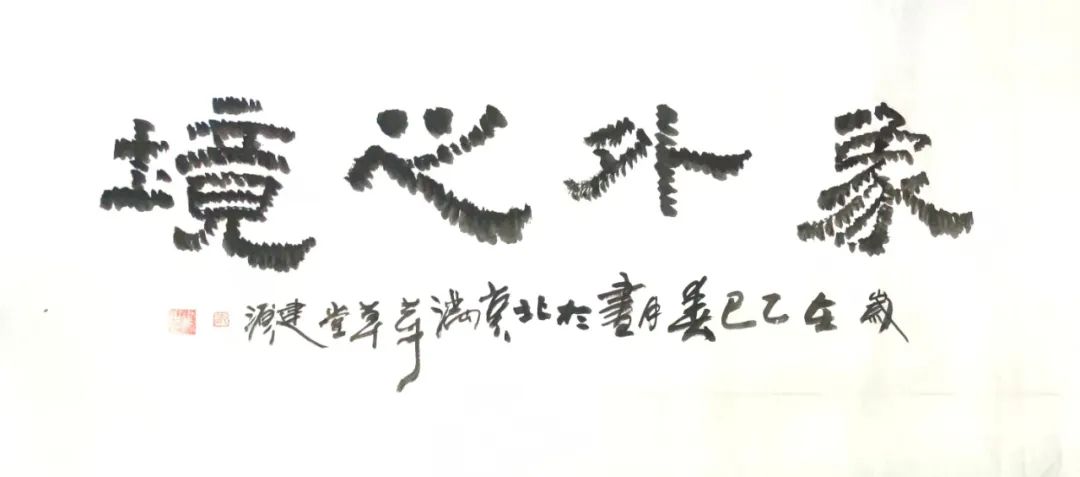 象外之境
歲在乙巳春月書於北京滿芳草堂建源